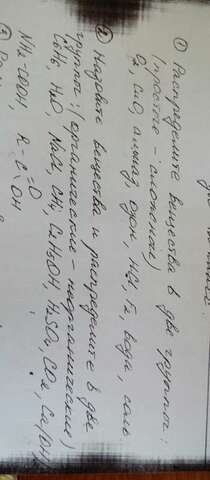 ① Распределите вещества в две группы:
(простые – сложные)
O₂, CuO, алмаз, озон, HCl, F₂, вода, соль
② Назовите вещества и распределите в две
группы: (органические – неорганические)
C₆H₆, H₂O, NaCl, CH₄, C₂H₅OH, H₂SO₄, CO₂, Ca(OH)
NH₂-COOH, R-C=O
OH
③